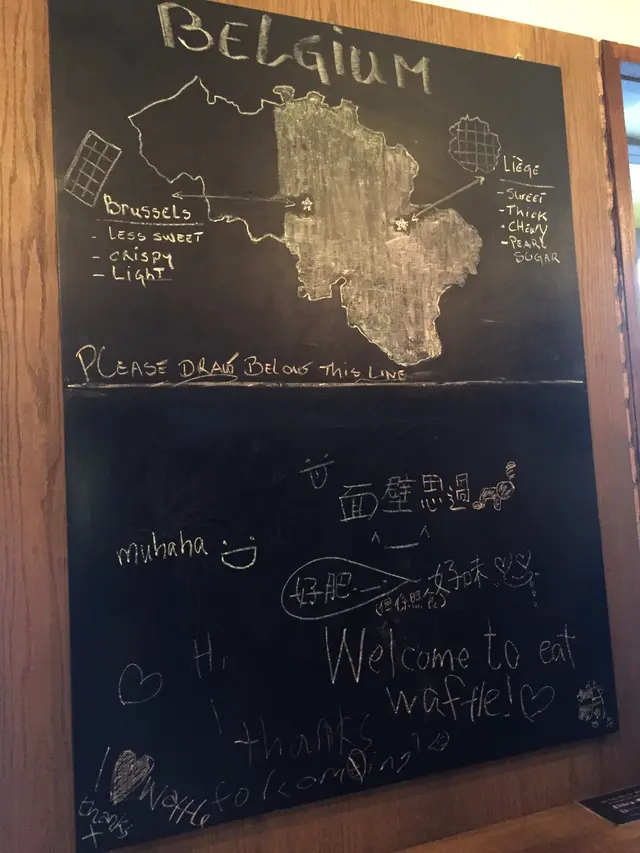 BELGIUM
Brussels
- LESS SWEET
- CRISPY
- LIGHT
LIÈGE
- SWEET
- THICK
- CHEWY
- PEARL
SUGAR
PLEASE DRAW BELOW THIS LINE
面壁思過
muhaha
好肥
好味
(但你照食)
Hi
Welcome to eat
waffle!
thanks
for coming!
I
Waffle
thanks